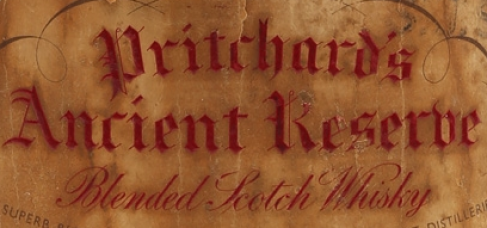 Pritchard's
Ancient Reserve
Blended Scotch Whisky
SUPERB
DISTILLERIE